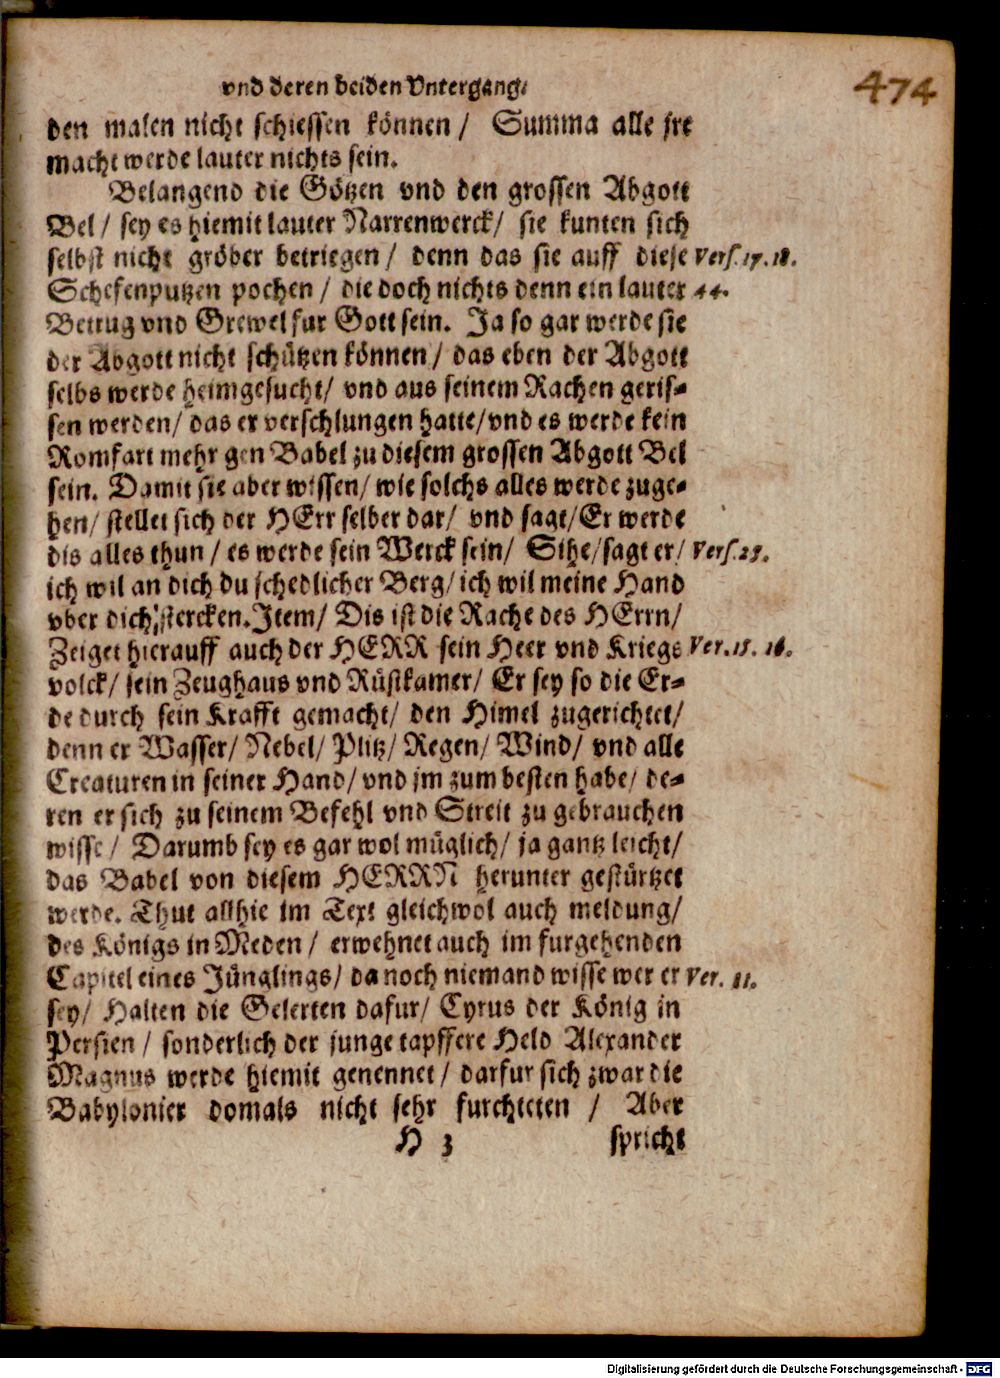 vnd deren beiden Vntergang. 474
den malen nicht schiessen können / Summa alle jre
macht werde lauter nichts sein.
Belangend die Götzen vnd den grossen Abgott
Bel / sey es hiemit lauter Narrenwerck / sie kunten sich
selbst nicht gröber betriegen / denn das sie auff diese Vers. 17. 18.
Schefenputzen pochen / die doch nichts denn ein lauter 44.
Betrug vnd Grewel fur Gott sein. Ja so gar werde sie
der Abgott nicht schützen können / das eben der Abgott
selbs werde heimgesucht / vnd aus seinem Rachen geris-
sen werden / das er verschlungen hatte / vnd es werde kein
Romfart mehr gen Babel zu diesem grossen Abgott Bel
sein. Damit sie aber wissen / wie solchs alles werde zuge-
hen / stellet sich der HErr selber dar / vnd sagt / Er werde
dis alles thun / es werde sein Werck sein / Sihe / sagt er / Vers. 25.
ich wil an dich du schedlicher Berg / ich wil meine Hand
vber dich stercken. Item / Dis ist die Rache des HErrn /
Zeiget hierauff auch der HERR sein Heer vnd Kriegs Ver. 15. 16.
volck / sein Zeughaus vnd Rüstkamer / Er sey so die Er-
de durch sein Krafft gemacht / den Himel zugerichtet /
denn er Wasser / Nebel / Plitz / Regen / Wind / vnd alle
Creaturen in seiner Hand / vnd jm zum besten habe / de-
ren er sich zu seinem Befehl vnd Streit zu gebrauchen
wisse / Darumb sey es gar wol müglich / ja gantz leicht /
das Babel von diesem HERRN herunter gestürtzet
werde. Thut allhie im Text gleichwol auch meldung /
des Königs in Meden / erwehnet auch im furgehenden
Capitel eines Jünglings / da noch niemand wisse wer er Ver. 11.
sey / Halten die Gelerten dafur / Cyrus der König in
Persien / sonderlich der junge tapffere Held Alexander
Magnus werde hiemit genennet / darfur sich zwar die
Babylonier domals nicht sehr furchteten / Aber
H 3 spricht
Digitalisierung gefördert durch die Deutsche Forschungsgemeinschaft - DFG